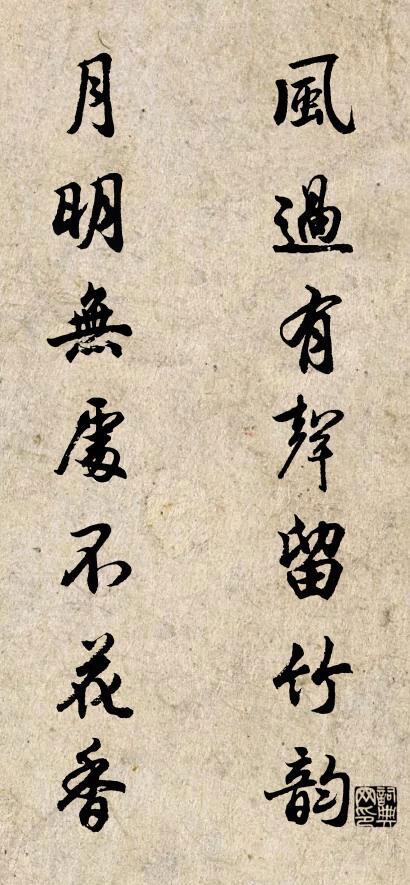 風過有聲留竹韵
月明無處不花香
詞典网印